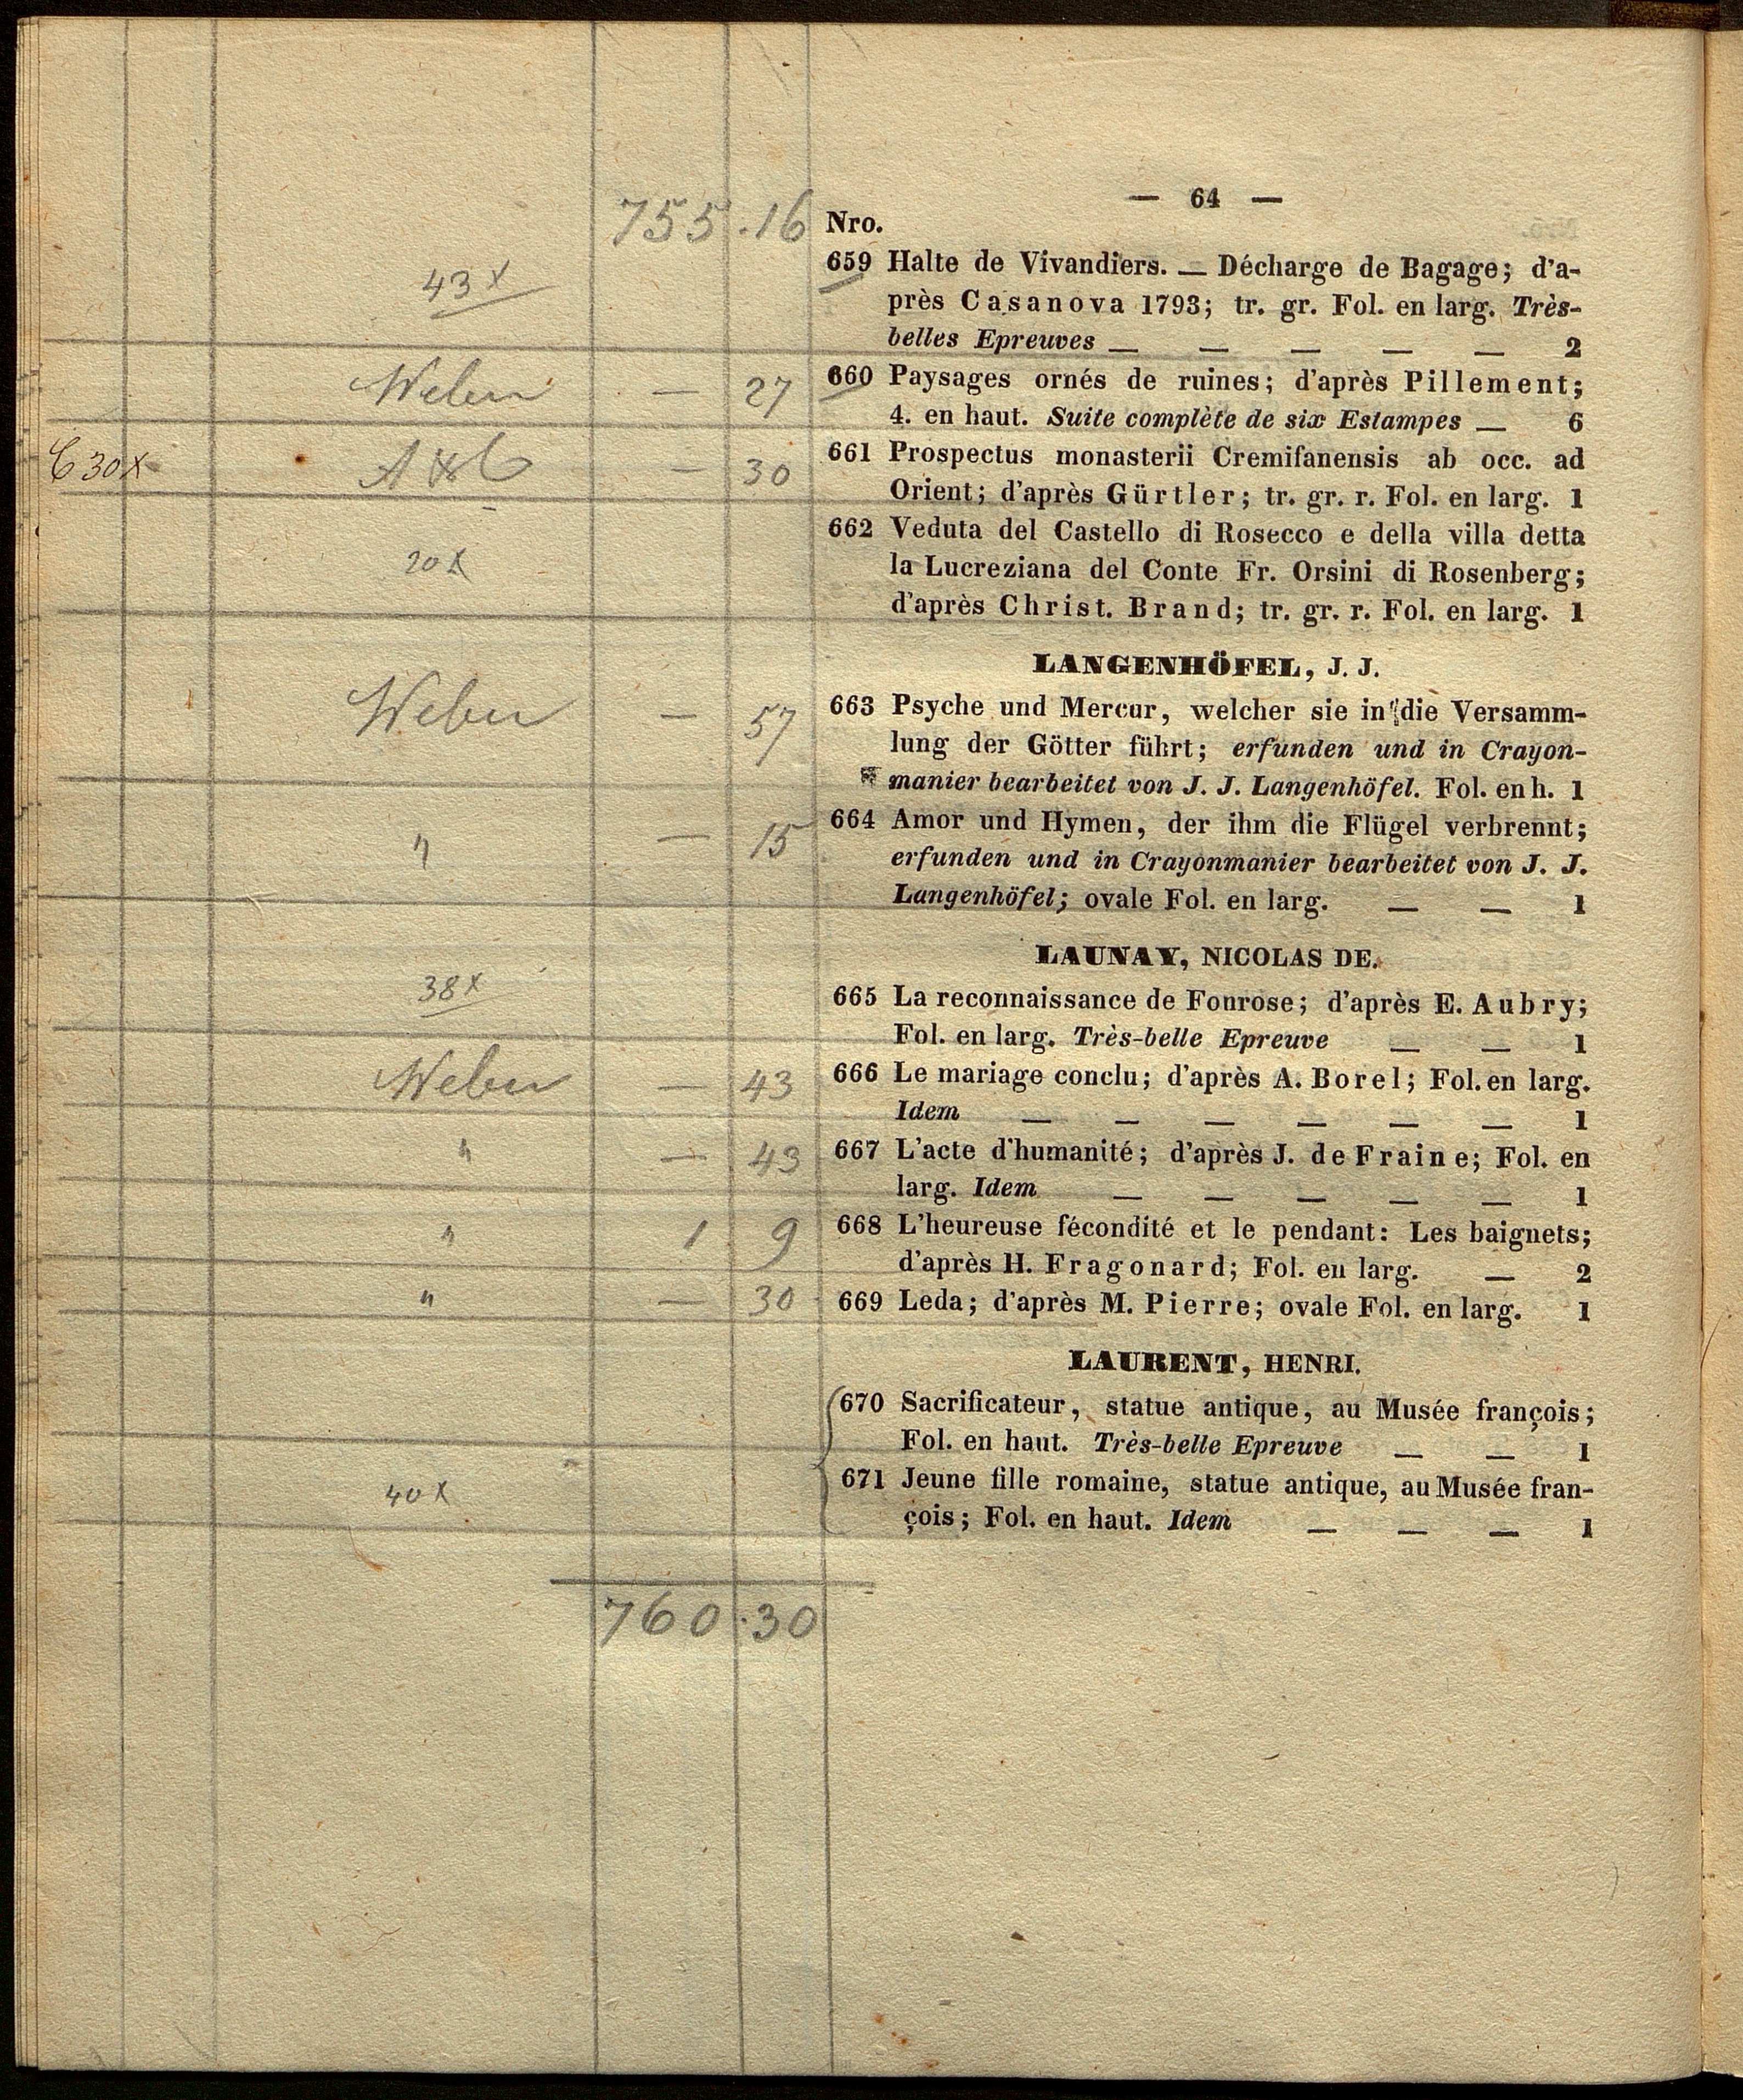 — 64 —
755 . 16 Nro.
43x
659 Halte de Vivandiers. — Décharge de Bagage; d'a-
près Casanova 1793; tr. gr. Fol. en larg. Très-
belles Epreuves — — — — — 2
Weber — 27 660 Paysages ornés de ruines; d'après Pillement;
4. en haut. Suite complète de six Estampes — 6
30x — 30 661 Prospectus monasterii Cremifanensis ab occ. ad
Orient; d'après Gürtler; tr. gr. r. Fol. en larg. 1
20x
662 Veduta del Castello di Rosecco e della villa detta
la Lucreziana del Conte Fr. Orsini di Rosenberg;
d'après Christ. Brand; tr. gr. r. Fol. en larg. 1
LANGENHÖFEL, J. J.
Weber — 57 663 Psyche und Mercur, welcher sie in die Versamm-
lung der Götter führt; erfunden und in Crayon-
manier bearbeitet von J. J. Langenhöfel. Fol. en h. 1
" — 15 664 Amor und Hymen, der ihm die Flügel verbrennt;
erfunden und in Crayonmanier bearbeitet von J. J.
Langenhöfel; ovale Fol. en larg. — — 1
LAUNAY, NICOLAS DE.
38x
665 La reconnaissance de Fonrose; d'après E. Aubry;
Fol. en larg. Très-belle Epreuve — — 1
Weber — 43 666 Le mariage conclu; d'après A. Borel; Fol. en larg.
Idem — — — — — — 1
" — 43 667 L'acte d'humanité; d'après J. de Fraine; Fol. en
larg. Idem — — — — — 1
" 1 9 668 L'heureuse fécondité et le pendant: Les baignets;
d'après H. Fragonard; Fol. en larg. — 2
" — 30 669 Leda; d'après M. Pierre; ovale Fol. en larg. 1
LAURENT, HENRI.
670 Sacrificateur, statue antique, au Musée françois;
Fol. en haut. Très-belle Epreuve — — 1
40x
671 Jeune fille romaine, statue antique, au Musée fran-
çois; Fol. en haut. Idem — — — 1
760 . 30